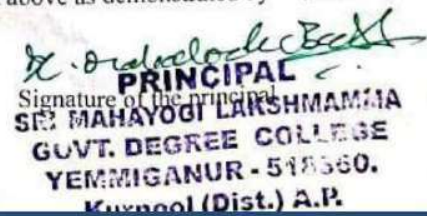 above as demonstrated by
PRINCIPAL
Signature of the principal
SRI MAHAYOGI LAKSHMAMMA
GOVT. DEGREE COLLEGE
YEMMIGANUR - 518360.
Kurnool (Dist.) A.P.